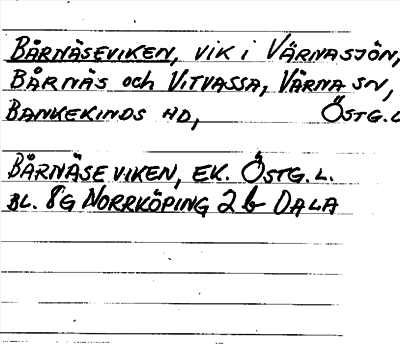 BÅRNÄSEVIKEN, VIK i VÄRNASJÖN,
BÅRNÄS och VITVASSA, VÄRNA SN,
BANKEKINDS HD, ÖSTG.L
BÅRNÄSEVIKEN, EK. ÖSTG.L.
BL. 8G NORRKÖPING 2 b DALA